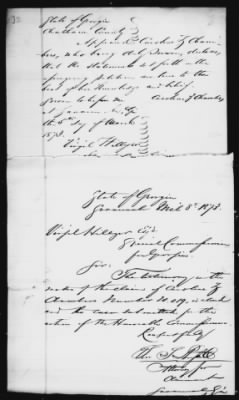 State of Georgia
Chatham County
Appeared Caroline Z Cham-
bers, who being duly sworn, declares
that the statements set forth in the
foregoing petition are true to the
best of her knowledge and belief.
Sworn to before me Caroline Z Chambers
at Savannah, Ga
the 8th day of March
1873.
Virgil Hillyer
State of Georgia
Savannah Mch 8th 1873.
Virgil Hillyer Esq
Special Commissioner
for Georgia
Sir: The testimony in the
matter of the claim of Caroline Z
Chambers is closed
and the case submitted for the
action of the Honorable Commissioners
Respectfully
Attorney for
Claimant
Savannah Ga